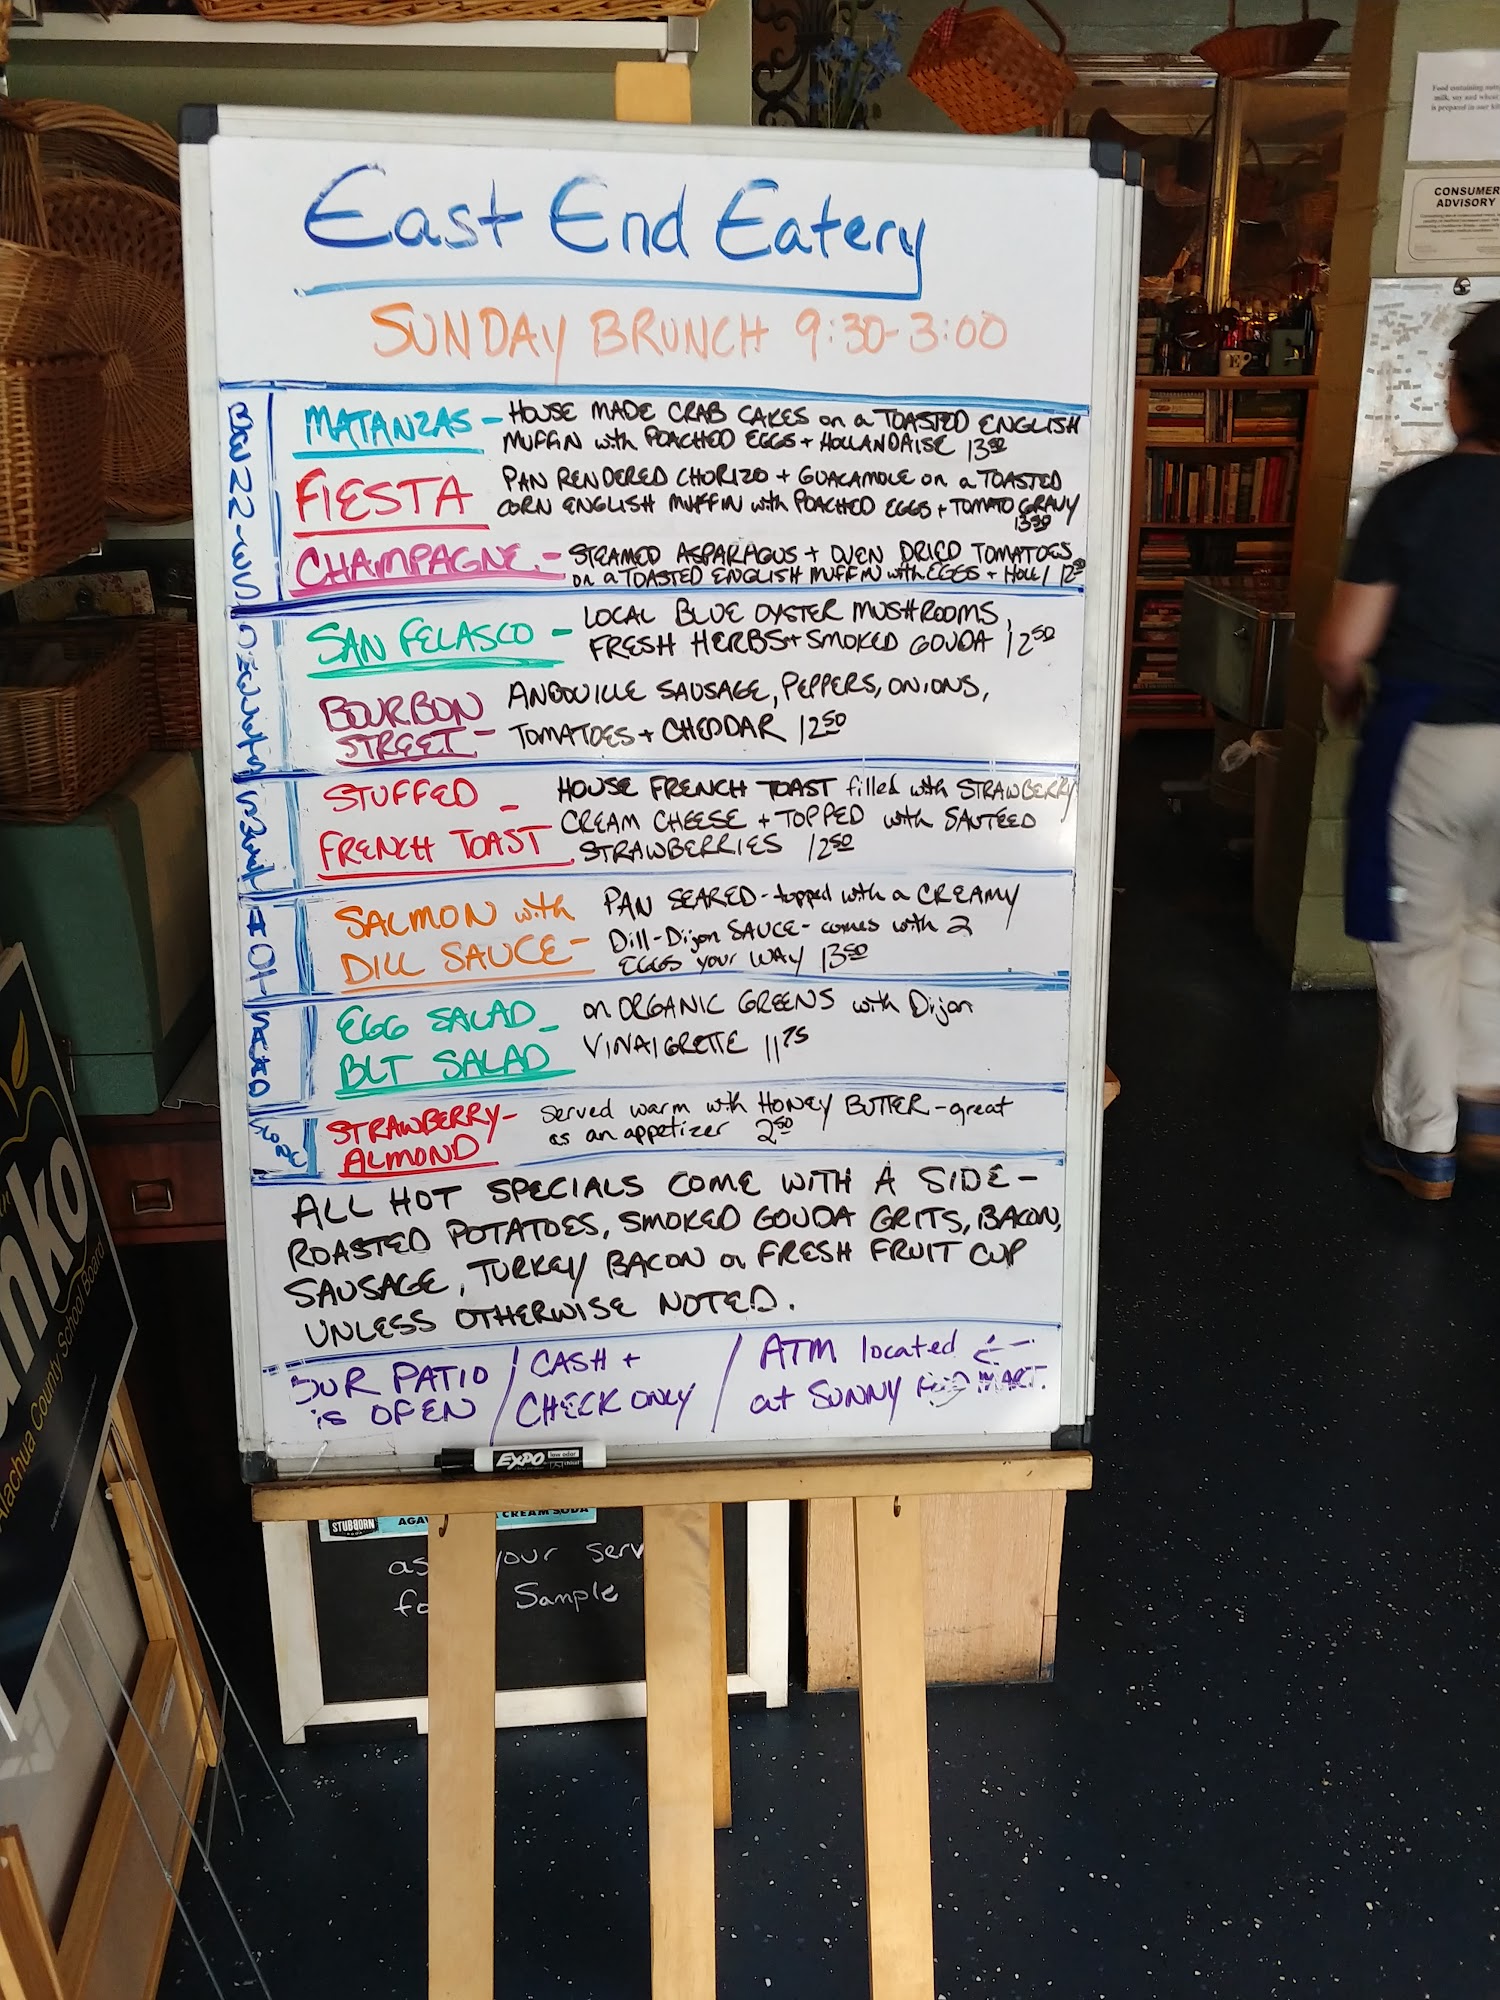 East End Eatery
SUNDAY BRUNCH 9:30-3:00
MATANZAS - HOUSE MADE CRAB CAKES on a TOASTED ENGLISH
MUFFIN with POACHED EGGS + HOLLANDAISE 13⁵⁰
FIESTA PAN RENDERED CHORIZO + GUACAMOLE on a TOASTED
CORN ENGLISH MUFFIN with POACHED EGGS + TOMATO GRAVY
13⁵⁰
CHAMPAGNE - STEAMED ASPARAGUS + OVEN DRIED TOMATOES
on a TOASTED ENGLISH MUFFIN with EGGS + HOLL/ 12⁵⁰
SAN FELASCO - LOCAL BLUE OYSTER MUSHROOMS,
FRESH HERBS + SMOKED GOUDA 12⁵⁰
BOURBON ANDOUILLE SAUSAGE, PEPPERS, ONIONS,
STREET - TOMATOES + CHEDDAR 12⁵⁰
STUFFED - HOUSE FRENCH TOAST filled with STRAWBERRY
FRENCH TOAST CREAM CHEESE + TOPPED with SAUTEED
STRAWBERRIES 12⁵⁰
SALMON with PAN SEARED - topped with a CREAMY
DILL SAUCE - Dill-Dijon SAUCE - comes with 2
EGGS your WAY 13⁵⁰
HOT
EGG SALAD - on ORGANIC GREENS with Dijon
BLT SALAD VINAIGRETTE 11⁷⁵
SALAD
STRAWBERRY- served warm with HONEY BUTTER - great
ALMOND as an appetizer 2⁵⁰
SCONE
ALL HOT SPECIALS COME WITH A SIDE -
ROASTED POTATOES, SMOKED GOUDA GRITS, BACON,
SAUSAGE, TURKEY BACON or FRESH FRUIT CUP
UNLESS OTHERWISE NOTED.
OUR PATIO / CASH + / ATM located ←
is OPEN / CHECK ONLY / at SUNNY FOOD MART.
EXPO low odor
STUBBORN
CREAM SODA
your serv
Sample
nko
Alachua County School Board
Food containing nuts
milk, soy and wheat
is prepared in our
CONSUMER
ADVISORY
E